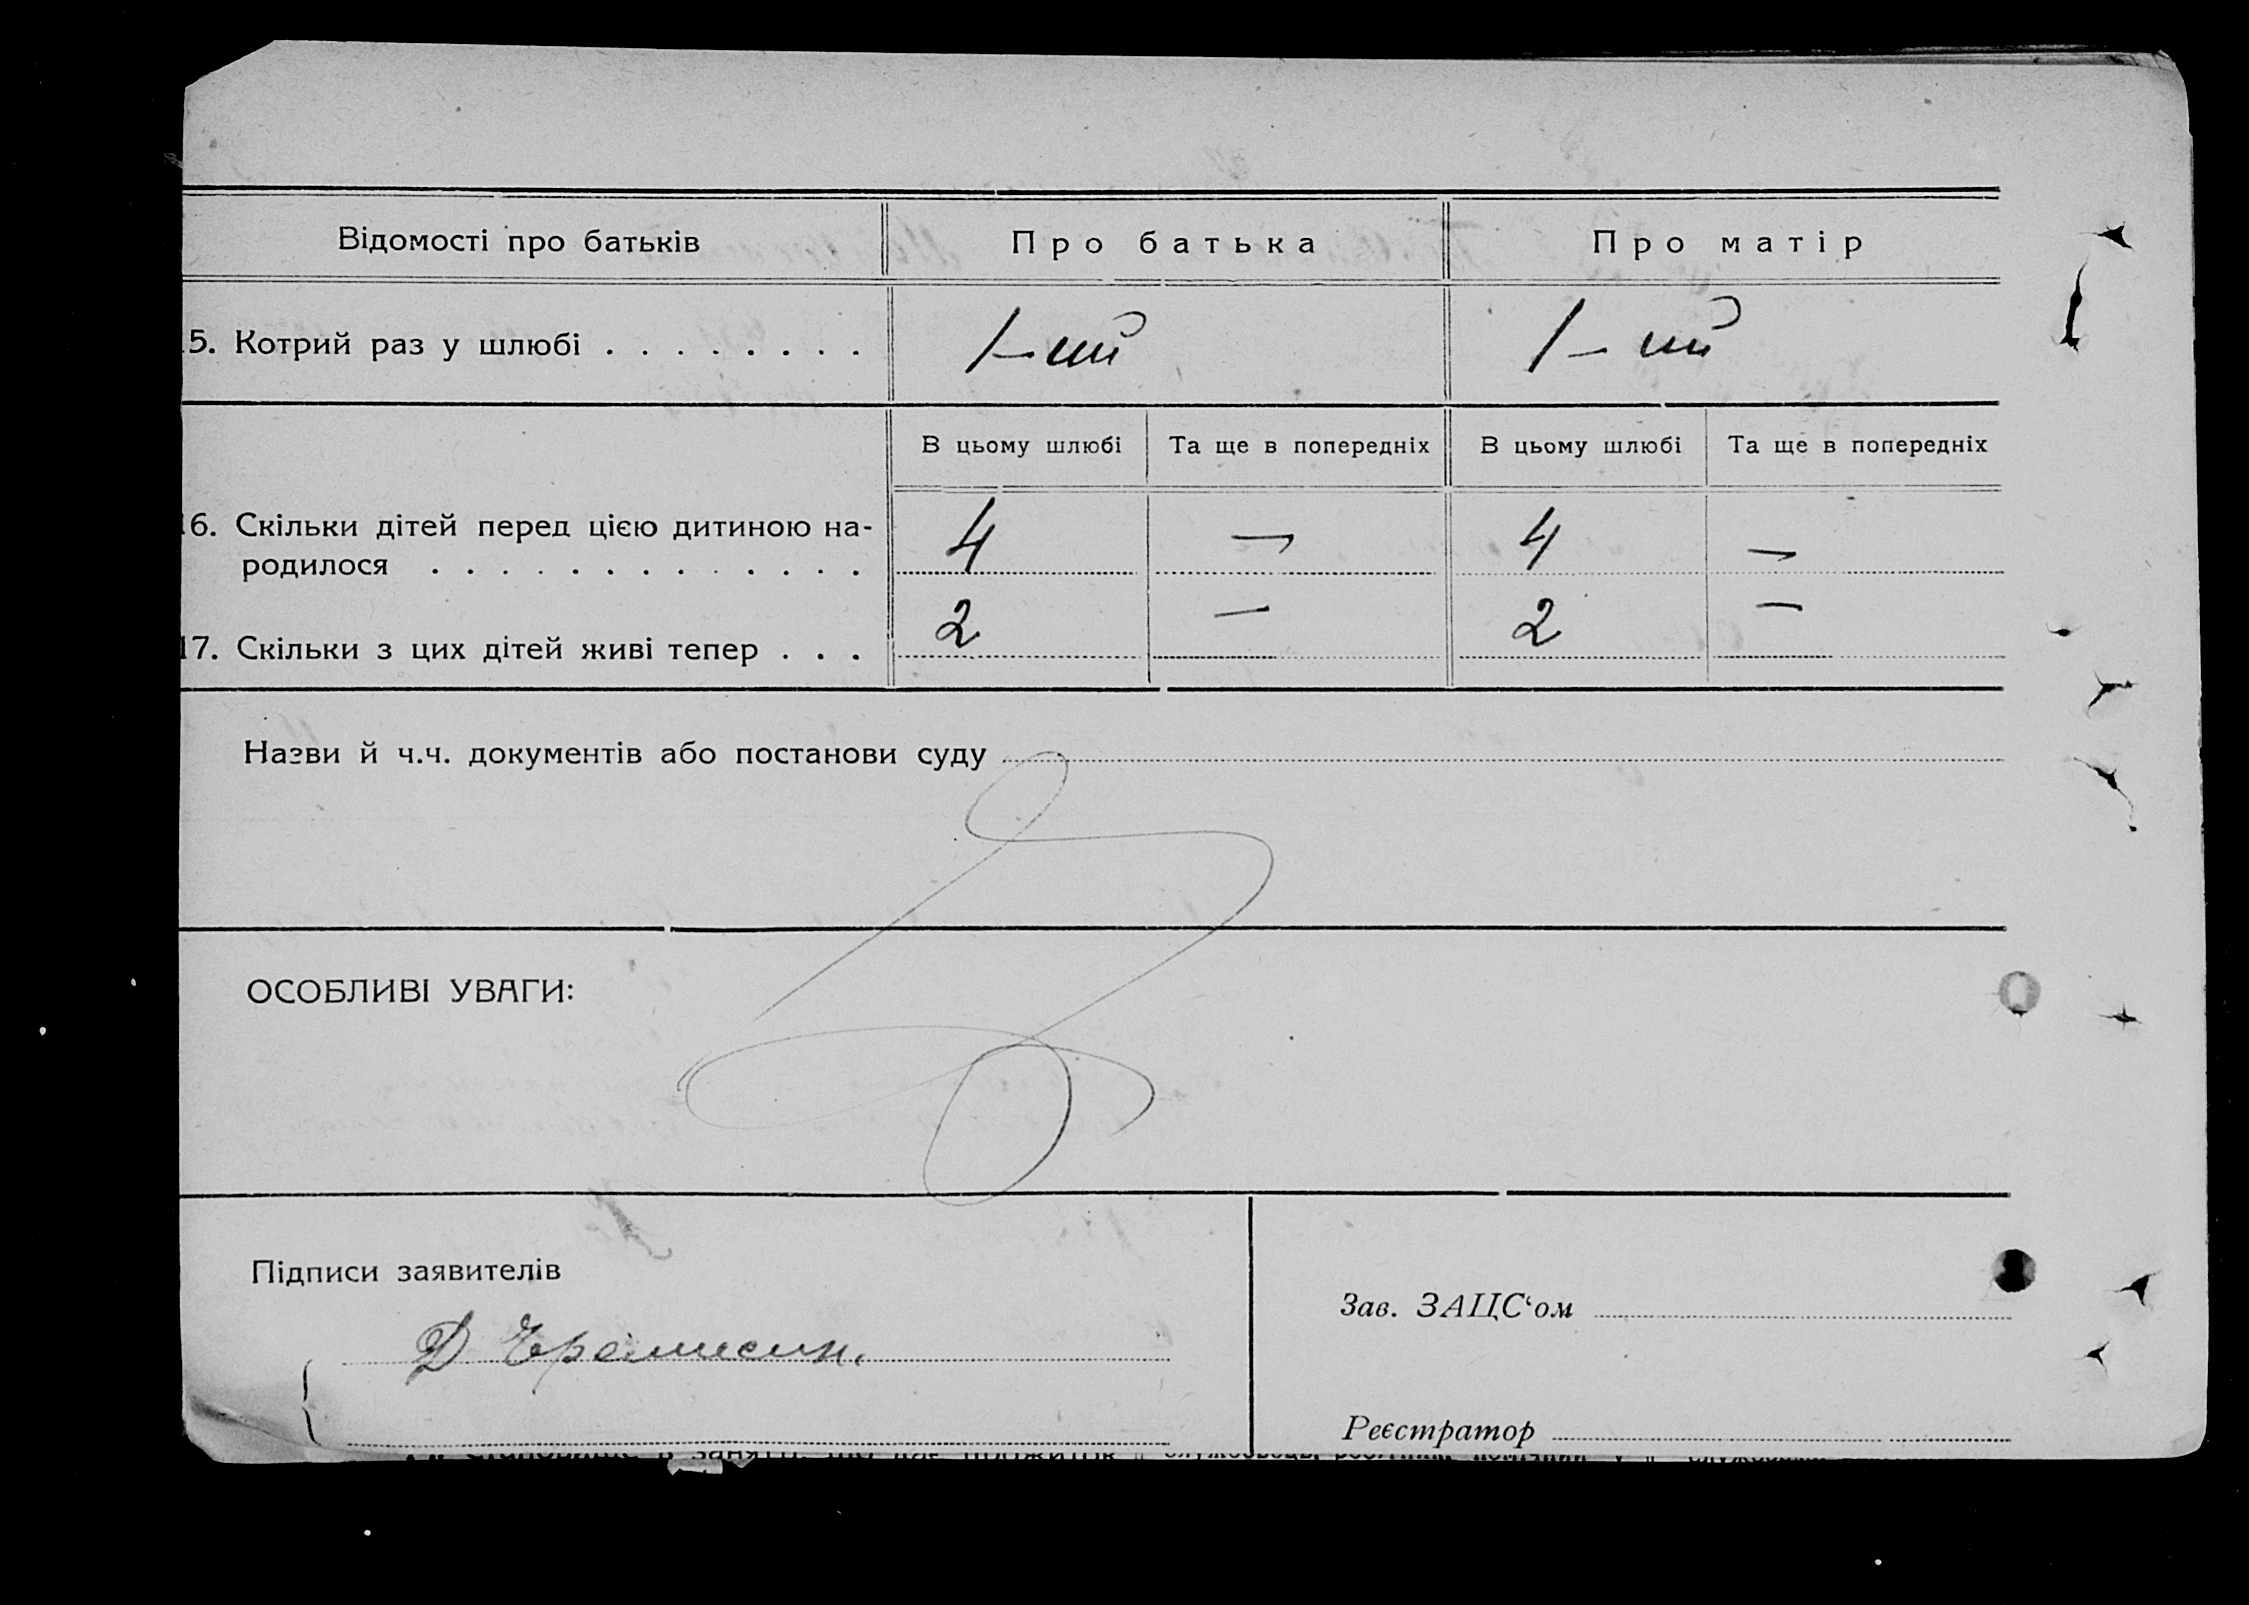 Відомості про батьків Про батька Про матір
5. Котрий раз у шлюбі . . . . . . . . 1-ий 1-ий
В цьому шлюбі Та ще в попередніх В цьому шлюбі Та ще в попередніх
16. Скільки дітей перед цією дитиною на-
родилося . . . . . . . . . . . . . 4 — 4 —
17. Скільки з цих дітей живі тепер . . . 2 — 2 —
Назви й ч.ч. документів або постанови суду
ОСОБЛИВІ УВАГИ:
Підписи заявителів
Д
Зав. ЗАЦС‘ом
Реєстратор